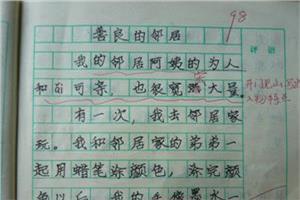 98
善良的邻居
我的邻居阿姨的为人
和蔼可亲，也很宽宏大量。
有一次，我去邻居家
玩。我和邻居家的弟弟一
起用蜡笔涂颜色，涂完颜
色以后，我的手像墨水一